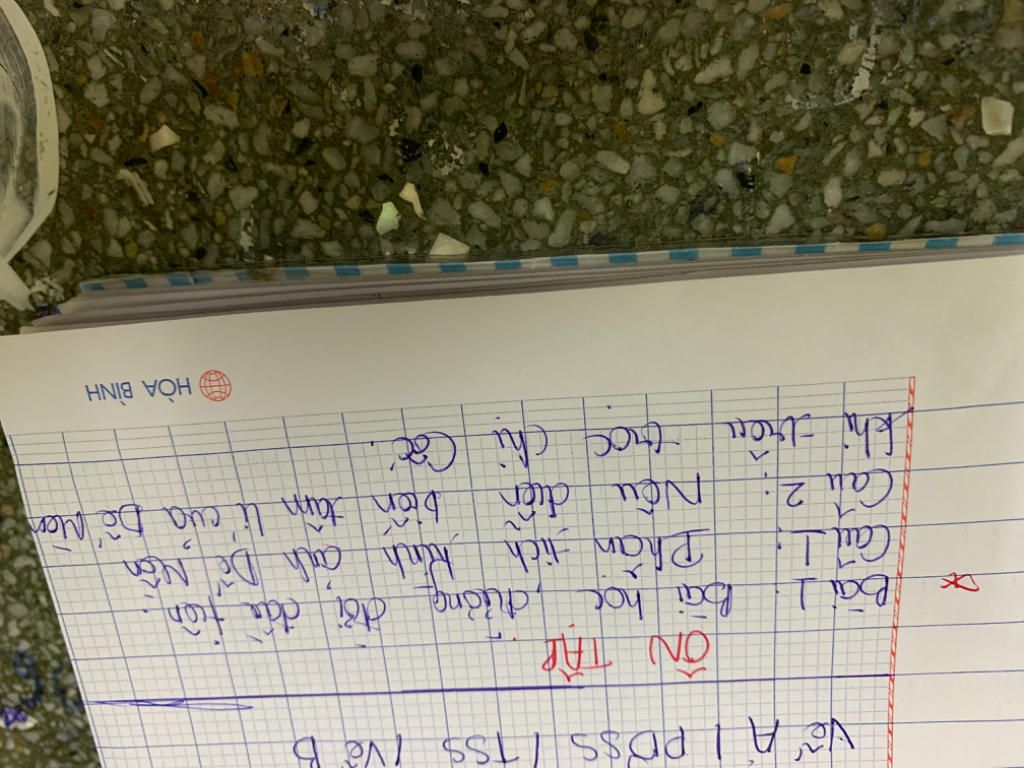 Vế A / PDSS / TSS / Vế B
ÔN TẬP
Bài 1: Bài học đường đời đầu tiên.
Câu 1: Phân tích hình ảnh Dế Mèn
Câu 2: Nêu diễn biến tâm lí của Dế Mèn
khi trêu trọc chị Cốc.
HÒA BÌNH